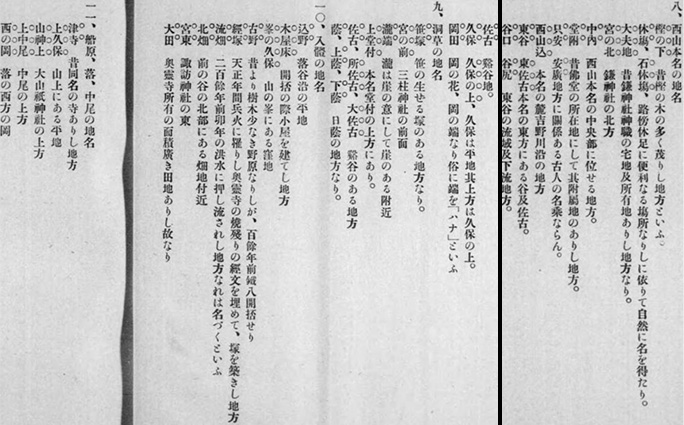 八、西山本名の地名
樫の下　昔樫の木の多く茂りし地方といふ。
休塲、石休塲、路傍休足に便利なる塲所なりしに依りて自然に名を得たり。
大夫地　昔鎌神社神職の宅地及所有地ありし地方なり。
宮の北　鎌神社の北方
中内　西山本名の中央部に位せる地方。
堂附　昔佛堂の所在地にして其附屬地のありし地方。
只安　安廣地方に關係ある古人の名乘ならん。
西山込　本名の麓吉野川沿の地方
東谷、東佐古本名の東方にある谷及佐古。
谷口　谷尻　東谷の流域及下流地方。
佐古　谿谷地。
久保　久保の上、久保は平地其上方は久保の上。
岡田　岡の花、岡の端なり俗に端を「ハナ」といふ
九、洞草の地名
笹塚　笹の生せる塚のある地方なり。
宮の前　三柱神社の前面
瀧端　瀧は崖の意にして崖のある附近
上堂付　本名堂付の上方にあり。
佐古、所佐古、大佐古　谿谷のある地方
蔭、上蔭、下蔭　日蔭の地方なり。
一〇、入䯊の地名
込野　落谷沿の平地
木屋床　開括の際小屋を建てし地方
峯の久保　山の峯にある窪地
古野　昔より樹木少なき野原なりしが、百餘年前傾八開括せり
經塚　天正年間兵火に罹りし奥靈寺の燒殘りの經文を埋めて、塚を築きし地方
流畑　二百餘年前卯年の洪水に押し流されし地方なれは名づくといふ
北畑　前の谷の北部にある畑地付近
宮東　諏訪神社の東
大田　奥靈寺所有の面積廣き田地ありし故なり
一一、船原、落、中尾の地名
津寺　昔同名の寺ありし地方
上久保　山上にある平地
山神上　大山祇神社の上方
上中尾　中尾の上方
西の岡　落の西方の岡